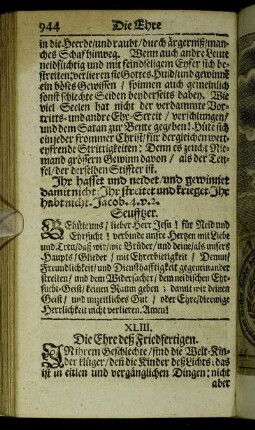 944 Die Ehre
in die Heerde/und raubt/durch ärgerniß/man-
ches Schaf hinweg. Wenn auch andre Leute
neidsüchtig und mit feindseligem Eyfer sich be-
streiten/verlieren sie Gottes Huld/und gewinnē
ein böses Gewissen / kommen auch gemeinlich
sonst schlechte Seiden beyderseits dabey. Wie
viel Seelen hat nicht der verdammte Vor-
tritts- und andre Ehr-Streit / verschlungen/
und dem Satan zur Beute gegeben! Hüte sich
ein jeder frommer Christ/für dergleichen ver-
eyfrende Strittigkeiten: Denn es zeucht Nie-
mand grössern Gewinn davon / als der Teu-
fel/der derselben Stiffter ist.
Ihr hasset und neidet/und gewinnet
damit nicht: Ihr streitet und krieget/Ihr
habt nicht. Jacob. 4. v. 2.
Seufftzer.
BEhüte uns / lieber Herr Jesu! für Neid und
Ehrsucht! verbinde unsre Hertzen mit Liebe
und Treu/daß wir/wie Brüder/und deine/als unsers
Haupts/Glieder / mit Ehrerbietigkeit / Demut/
Freundlichkeit/und Diensthafftigkeit gegeneinander
streiten/und dem Widersacher/dem neidischen Ehr-
sucht-Geist/keinen Raum geben; damit wir deinen
Geist/ und unzeitliches Gut / oder Ehre/die ewige
Herrlichkeit nicht verlieren. Amen!
XLIII.
Die Ehre deß Friedfertigen.
IN ihrem Geschlechte/sind die Welt-Kin-
der klüger/deñ die Kinder deß Lichts: das
ist in eitlen und vergänglichen Dingen; nicht
aber